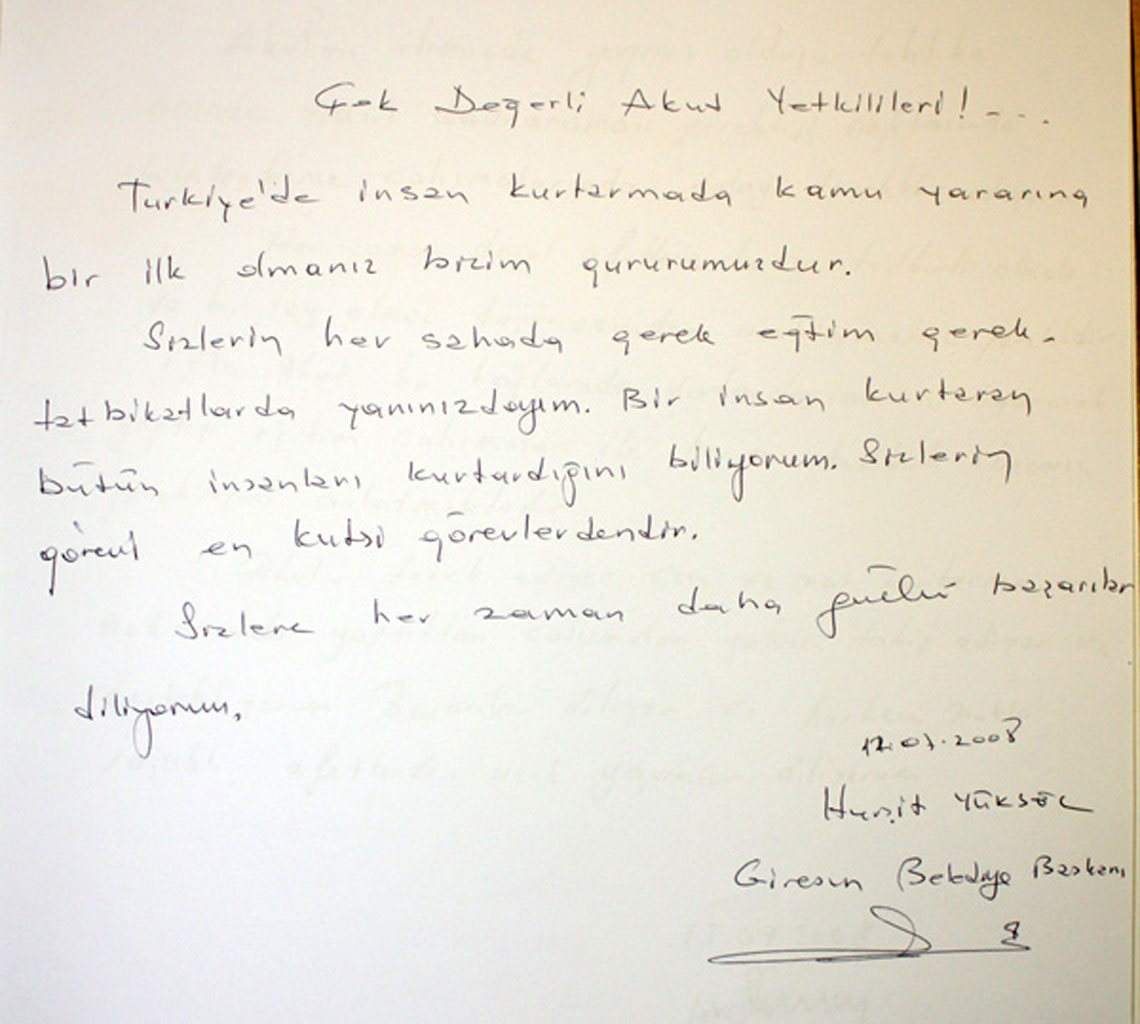 Çok Değerli Akut Yetkilileri!----
Türkiye'de insan kurtarmada kamu yararına
bir ilk olmanız bizim gururumuzdur.
Sizlerin her sahada gerek eğitim gerek-
tatbikatlarda yanınızdayım. Bir insan kurtaran
bütün insanları kurtardığını biliyorum. Sizlerin
görevi en kutsi görevlerdendir.
Sizlere her zaman daha güçlü başarılar
diliyorum,
Hurşit YÜKSEL
Giresun Belediye Başkanı